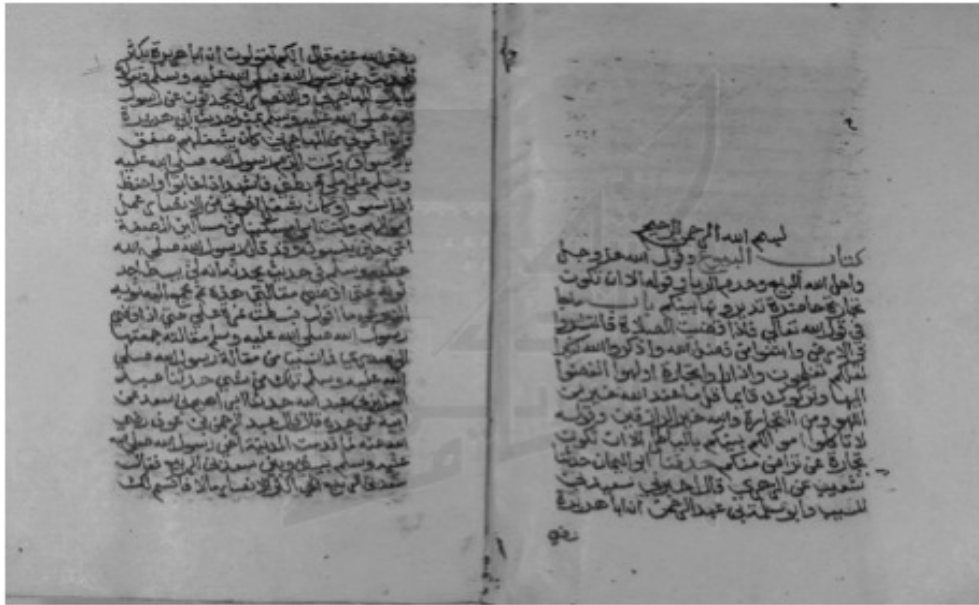 بسم الله الرحمن الرحيم
كتاب البيوع وقول الله عز وجل
واحل الله البيع وحرم الربا وقوله الا ان تكون
تجارة حاضرة تديرونها بينكم باب ما جا
في قول الله تعالى فاذا قضيت الصلاة فانتشروا
في الارض وابتغوا من فضل الله واذكروا الله كثيرا
لعلكم تفلحون واذا راوا تجارة او لهوا انفضوا
اليها وتركوك قايما قل ما عند الله خير من
اللهو ومن التجارة والله خير الرازقين وقوله
لا تاكلوا اموالكم بينكم بالباطل الا ان تكون
تجارة عن تراض منكم حدثنا ابو اليمان حدثنا
شعيب عن الزهري قال اخبرني سعيد بن
المسيب وابو سلمة بن عبد الرحمن ان ابا هريرة
رضي
رضي الله عنه قال انكم تقولون ان ابا هريرة يكثر
الحديث عن رسول الله صلى الله عليه وسلم وتقولون
ما بال المهاجرين والانصار لا يحدثون عن رسول
الله صلى الله عليه وسلم بمثل حديث ابي هريرة
وان اخوتي من المهاجرين كان يشغلهم صفق
بالاسواق وكنت الزم رسول الله صلى الله عليه
وسلم على ملء بطني فاشهد اذا غابوا واحفظ
اذا نسوا وكان يشغل اخوتي من الانصار عمل
اموالهم وكنت امرا مسكينا من مساكين الصفة
اعي حين ينسون وقد قال رسول الله صلى الله
عليه وسلم في حديث يحدثه انه لن يبسط احد
ثوبه حتى اقضي مقالتي هذه ثم يجمع اليه ثوبه
الا وعى ما اقول فبسطت نمرة علي حتى اذا قضى
رسول الله صلى الله عليه وسلم مقالته جمعتها
الى صدري فما نسيت من مقالة رسول الله صلى
الله عليه وسلم تلك من شي حدثنا عبد
العزيز بن عبد الله حدثنا ابراهيم بن سعد عن
ابيه عن جده قال قال عبد الرحمن بن عوف رضي
الله عنه لما قدمت المدينة اخى رسول الله صلى الله
عليه وسلم بيني وبين سعد بن الربيع فقال
سعد بن الربيع اني اكثر الانصار مالا فاقسم لك